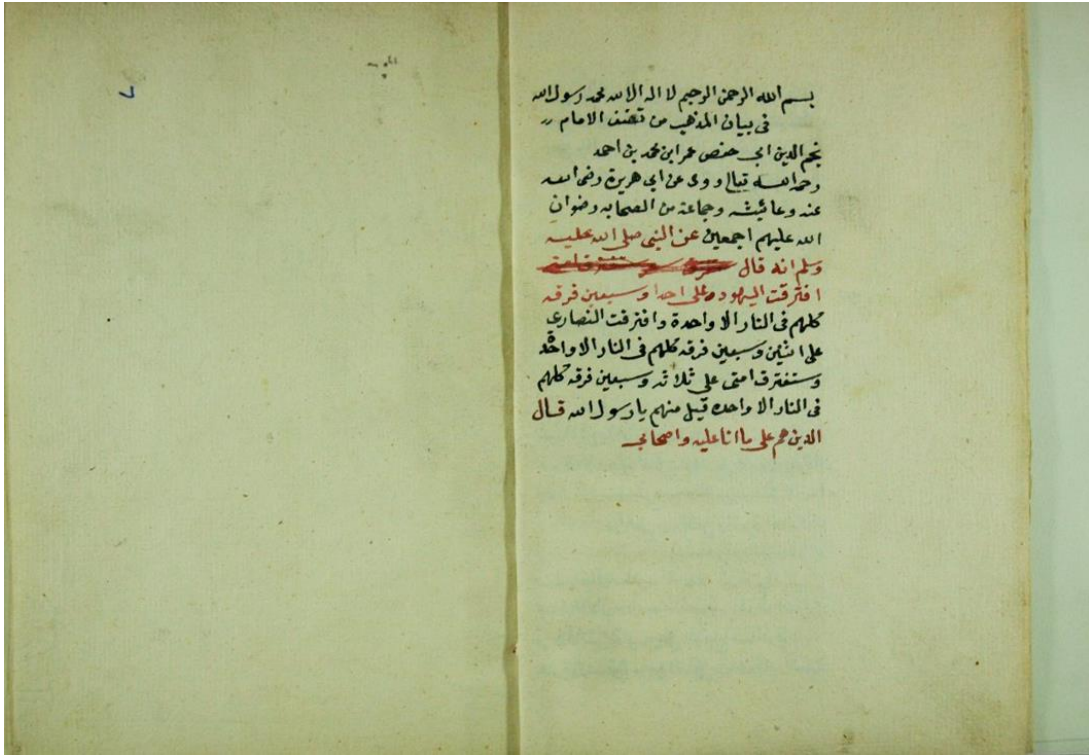 بسم الله الرحمن الرحيم لا اله الا الله محمد رسول الله
فى بيان المذهب من تصنف الامام
نجم الدين ابى حفص عمر ابن محمد بن احمد
رحمه الله تعالى وروى عن ابى هريرة رضى الله
عنه وعائيشه وجماعة من الصحابه رضوان
الله عليهم اجمعين عن النبى صلى الله عليه
وسلم انه قال
افترقت اليهوده على احدا وسبعين فرقه
كلهم فى النار الا واحدة وافترقت النصارى
على اثنين وسبعين فرقه كلهم فى النار الا واحدة
وستفترق امتى على ثلاثه وسبعين فرقه كلهم
فى النار الا واحده قيل منهم يا رسول الله قال
الذين هم على ما انا عليه واصحابى